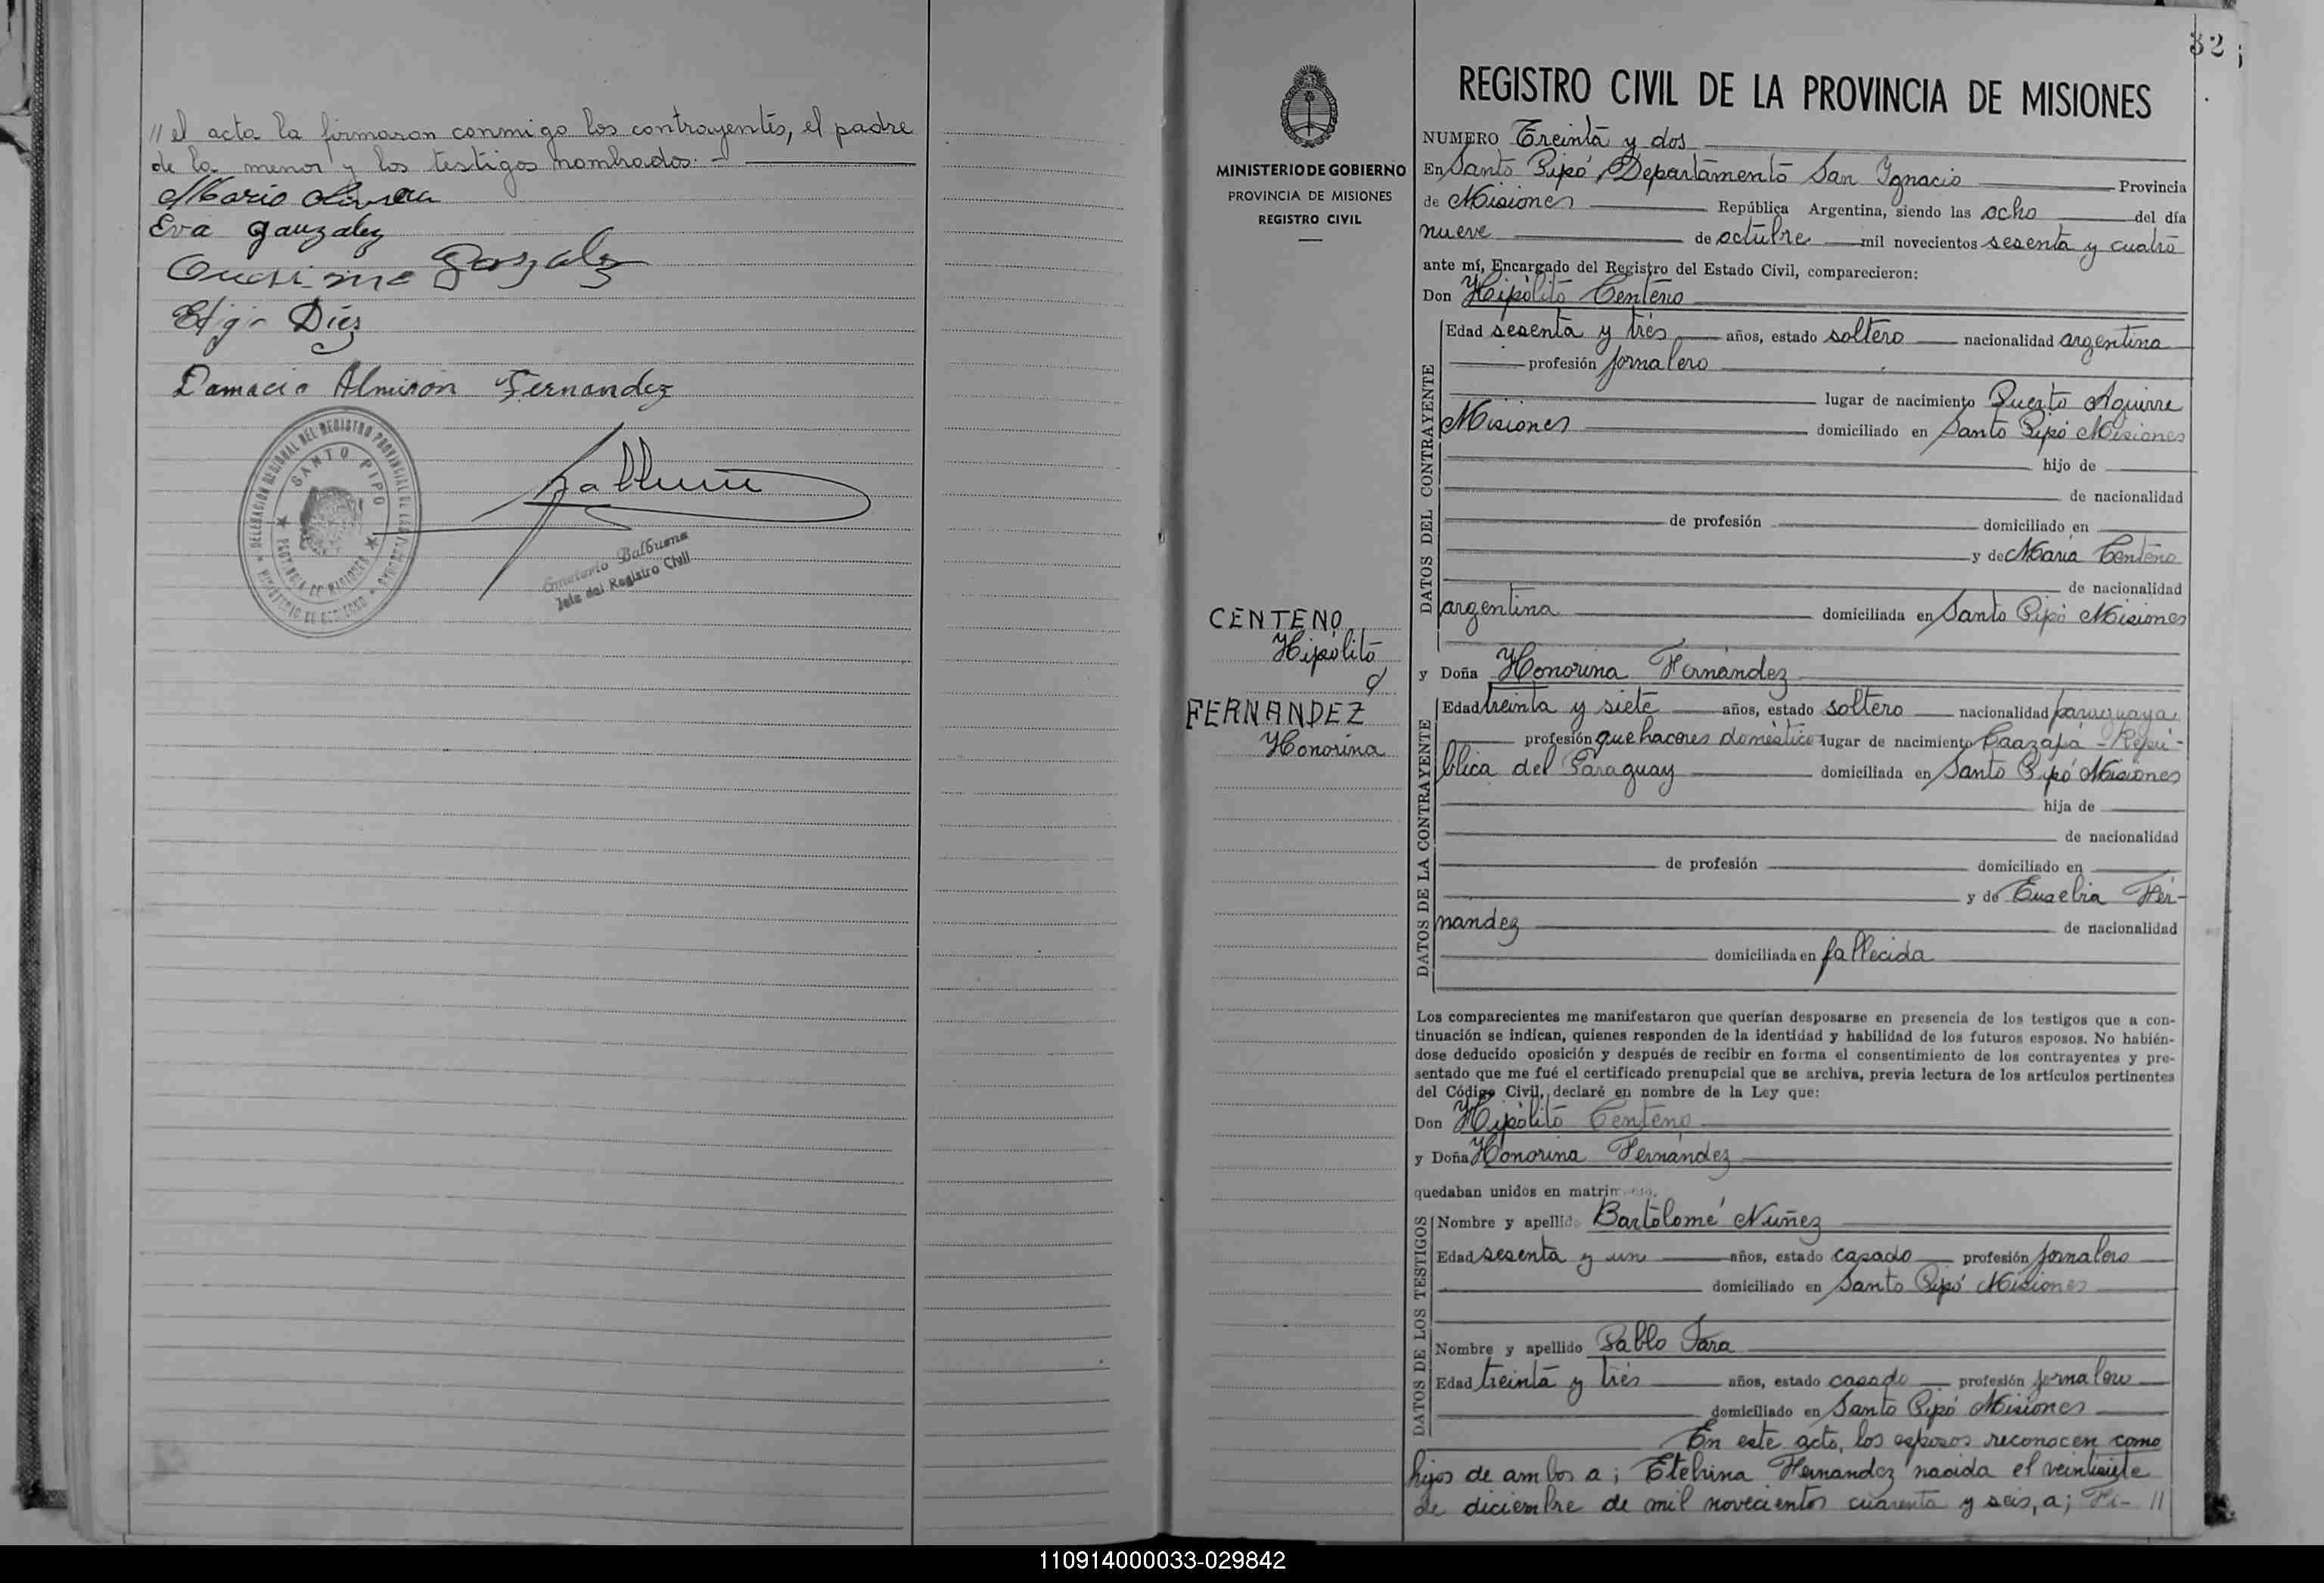 // el acta la firmaron conmigo los contrayentes, el padre
de la menor y los testigos nombrados. -
Mario
Eva Gauzalez
Gonzalez
Díez
Damacio Almirón Fernandez
DELEGACION REGIONAL DEL REGISTRO PROVINCIAL DE LAS PERSONAS
SANTO PIPO
PROVINCIA DE MISIONES
MINISTERIO DE GOBIERNO
Balbuena
Jefe del Registro Civil
32
MINISTERIO DE GOBIERNO
PROVINCIA DE MISIONES
REGISTRO CIVIL
CENTENO
Hipólito
y
FERNANDEZ
Honorina
REGISTRO CIVIL DE LA PROVINCIA DE MISIONES
NUMERO Treinta y dos
En Santo Pipó, Departamento San Ignacio Provincia
de Misiones República Argentina, siendo las ocho del día
nueve de octubre mil novecientos sesenta y cuatro
ante mí, Encargado del Registro del Estado Civil, comparecieron:
Don Hipólito Centeno
DATOS DEL CONTRAYENTE
Edad sesenta y tres años, estado soltero nacionalidad argentina
profesión jornalero
lugar de nacimiento Puerto Aguirre
Misiones domiciliado en Santo Pipó Misiones
hijo de
de nacionalidad
de profesión domiciliado en
y de María Centeno
de nacionalidad
argentina domiciliada en Santo Pipó Misiones
y Doña Honorina Fernández
DATOS DE LA CONTRAYENTE
Edad treinta y siete años, estado soltero nacionalidad paraguaya
profesión quehaceres doméstico lugar de nacimiento Caazapá - Repú-
blica del Paraguay domiciliada en Santo Pipó Misiones
hija de
de nacionalidad
de profesión domiciliado en
y de Eusebia Fer-
nandez de nacionalidad
domiciliada en fallecida
Los comparecientes me manifestaron que querían desposarse en presencia de los testigos que a con-
tinuación se indican, quienes responden de la identidad y habilidad de los futuros esposos. No habién-
dose deducido oposición y después de recibir en forma el consentimiento de los contrayentes y pre-
sentado que me fué el certificado prenupcial que se archiva, previa lectura de los artículos pertinentes
del Código Civil, declaré en nombre de la Ley que:
Don Hipólito Centeno
y Doña Honorina Fernández
quedaban unidos en matrimonio.
DATOS DE LOS TESTIGOS
Nombre y apellido Bartolomé Nuñez
Edad sesenta y un años, estado casado profesión jornalero
domiciliado en Santo Pipó Misiones
Nombre y apellido Pablo Jara
Edad treinta y tres años, estado casado profesión jornalero
domiciliado en Santo Pipó Misiones
En este acto, los esposos reconocen como
hijos de ambos a; Etelvina Hernandez nacida el veintisiete
de diciembre de mil novecientos cuarenta y seis, a; Hi- //
110914000033-029842